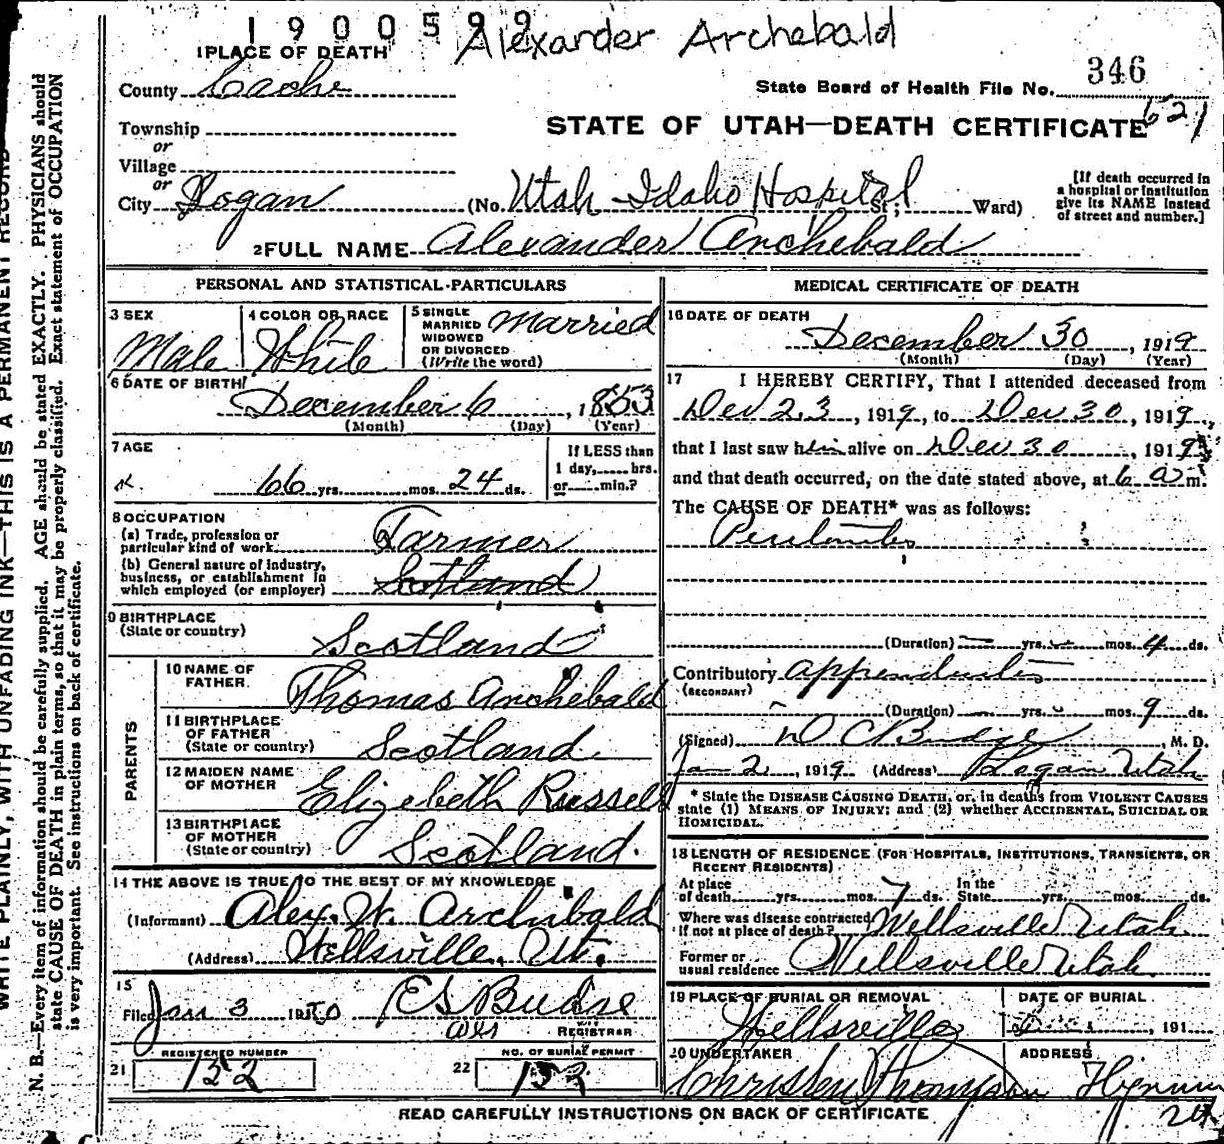 1900599 Alexander Archebald
1 PLACE OF DEATH
County Cache
State Board of Health File No. 346
621
Township
or
Village
or
City Logan
STATE OF UTAH—DEATH CERTIFICATE
(No. Utah Idaho Hospital St; Ward)
[If death occurred in
a hospital or institution
give its NAME instead
of street and number.]
2 FULL NAME Alexander Archebald
PERSONAL AND STATISTICAL PARTICULARS
3 SEX
Male
4 COLOR OR RACE
White
5 SINGLE
MARRIED
WIDOWED
OR DIVORCED
(Write the word)
Married
6 DATE OF BIRTH
December 6, 1853
(Month) (Day) (Year)
7 AGE
66 yrs. mos. 24 ds.
If LESS than
1 day, hrs.
or min.?
8 OCCUPATION
(a) Trade, profession or
particular kind of work
Farmer
(b) General nature of industry,
business, or establishment in
which employed (or employer)
Scotland
9 BIRTHPLACE
(State or country)
Scotland
PARENTS
10 NAME OF
FATHER
Thomas Archebald
11 BIRTHPLACE
OF FATHER
(State or country)
Scotland
12 MAIDEN NAME
OF MOTHER
Elizebeth Russell
13 BIRTHPLACE
OF MOTHER
(State or country)
Scotland.
14 THE ABOVE IS TRUE TO THE BEST OF MY KNOWLEDGE
(Informant) Alex. W. Archibald
(Address) Wellsville, Ut.
15
Filed Jan 3
REGISTRAR
REGISTERED NUMBER
21 152
NO. OF BURIAL PERMIT
22 152
MEDICAL CERTIFICATE OF DEATH
16 DATE OF DEATH
December 30, 1919
(Month) (Day) (Year)
17 I HEREBY CERTIFY, That I attended deceased from
Dec 23, 1919, to Dec 30, 1919,
that I last saw him alive on Dec 30, 1919
and that death occurred, on the date stated above, at 6 a m.
The CAUSE OF DEATH* was as follows:
Peritonitis
(Duration) yrs. mos. 4 ds.
Contributory appendicitis
(SECONDARY)
(Duration) yrs. mos. 9 ds.
(Signed) D C Budge, M. D.
Jan 2, 1919 (Address) Logan Utah
* State the DISEASE CAUSING DEATH, or, in deaths from VIOLENT CAUSES
state (1) MEANS OF INJURY; and (2) whether ACCIDENTAL, SUICIDAL OR
HOMICIDAL.
18 LENGTH OF RESIDENCE (FOR HOSPITALS, INSTITUTIONS, TRANSIENTS, OR
RECENT RESIDENTS)
At place
of death yrs. mos. 7 ds.
In the
State yrs. mos. ds.
Where was disease contracted
If not at place of death? Wellsville Utah
Former or
usual residence Wellsville Utah
19 PLACE OF BURIAL OR REMOVAL
Wellsville
DATE OF BURIAL
, 191
20 UNDERTAKER
Thompson
ADDRESS
READ CAREFULLY INSTRUCTIONS ON BACK OF CERTIFICATE
WRITE PLAINLY, WITH UNFADING INK—THIS IS A PERMANENT RECORD
N. B.—Every item of information should be carefully supplied. AGE should be stated EXACTLY. PHYSICIANS should
state CAUSE OF DEATH in plain terms, so that it may be properly classified. Exact statement of OCCUPATION
is very important. See instructions on back of certificate.